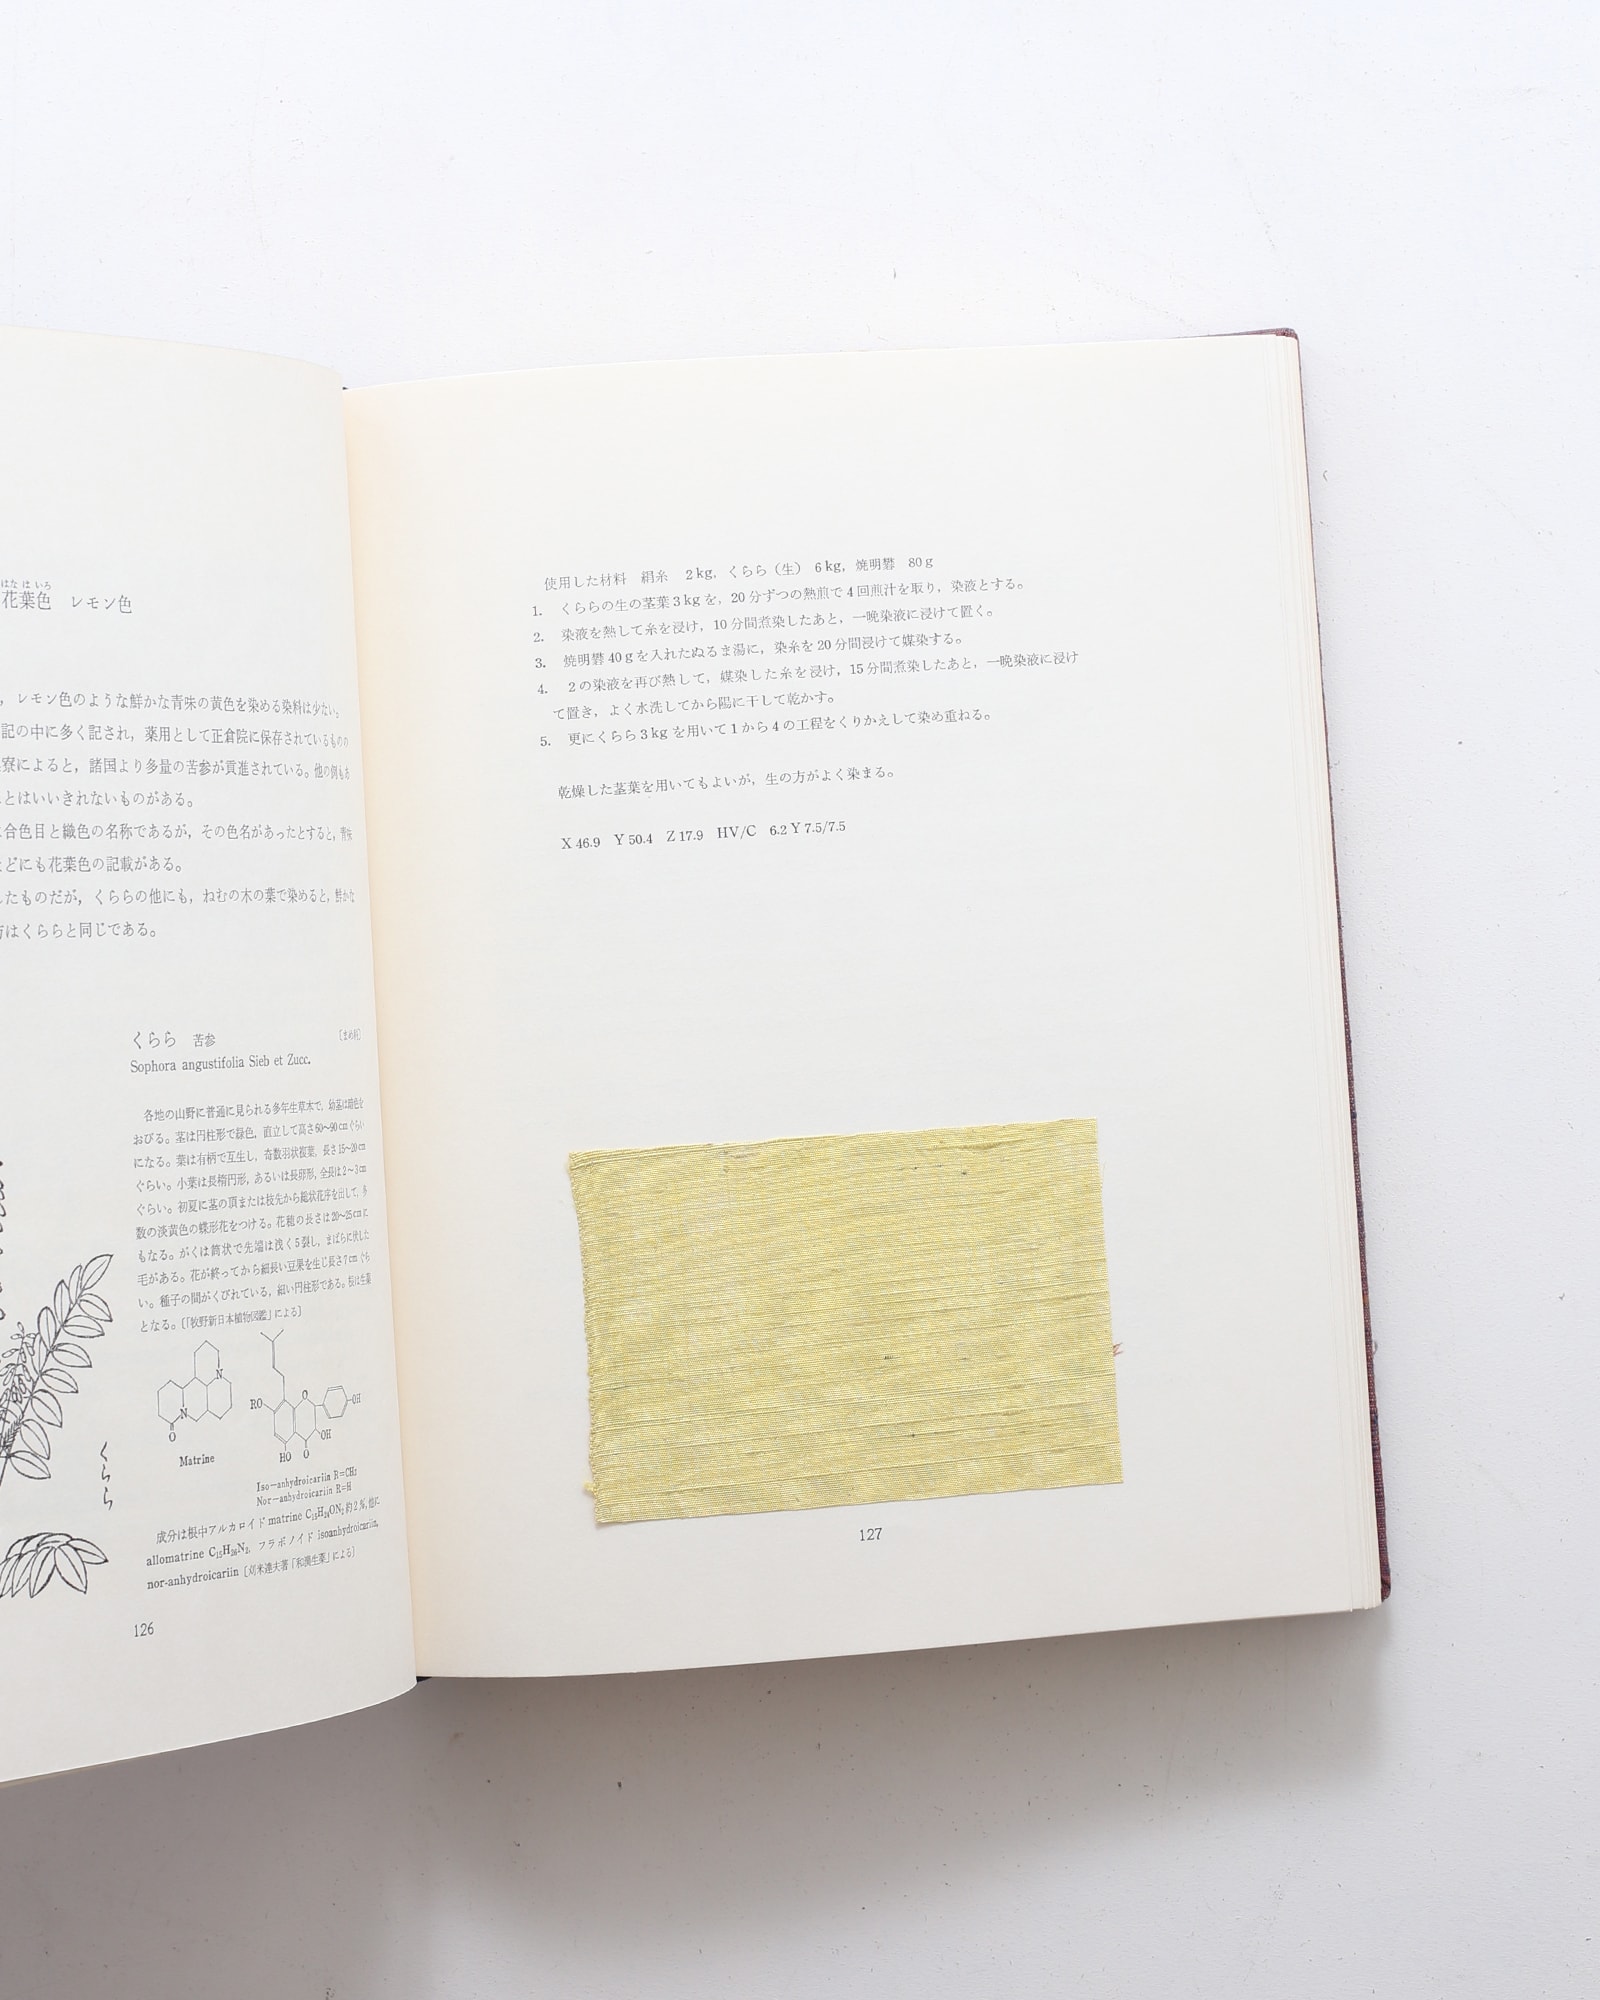 はなはいろ
花葉色 レモン色
，レモン色のような鮮かな青味の黄色を染める染料は少ない。
記の中に多く記され，薬用として正倉院に保存されているものの
寮によると，諸国より多量の苦参が貢進されている。他の例もあ
とはいいきれないものがある。
合色目と織色の名称であるが，その色名があったとすると，青味
どにも花葉色の記載がある。
したものだが，くららの他にも，ねむの木の葉で染めると，鮮かな
方はくららと同じである。
くらら 苦参 〔まめ科〕
Sophora angustifolia Sieb et Zucc.
各地の山野に普通に見られる多年生草本で，幼茎は暗色を
おびる。茎は円柱形で緑色，直立して高さ60〜90cmぐらい
になる。葉は有柄で互生し，奇数羽状複葉，長さ15〜20cm
ぐらい。小葉は長楕円形，あるいは長卵形，全長は2〜3cm
ぐらい。初夏に茎の頂または枝先から総状花序を出して，多
数の淡黄色の蝶形花をつける。花穂の長さは20〜25cmに
もなる。がくは筒状で先端は浅く5裂し，まばらに伏した
毛がある。花が終ってから細長い豆果を生じ長さ7cmぐら
い。種子の間がくびれている，細い円柱形である。根は生薬
となる。〔「牧野新日本植物図鑑」による〕
N
N
O
Matrine
RO
O
OH
OH
HO
O
Iso-anhydroicariin R=CH₃
Nor-anhydroicariin R=H
くらら
成分は根中アルカロイド matrine C₁₅H₂₄ON₂ 約2％，他に
allomatrine C₁₅H₂₆N₂，フラボノイド isoanhydroicariin,
nor-anhydroicariin〔刈米達夫著「和漢生薬」による〕
126
使用した材料 絹糸 2kg，くらら（生） 6kg，焼明礬 80g
1. くららの生の茎葉3kgを，20分ずつの熱煎で4回煎汁を取り，染液とする。
2. 染液を熱して糸を浸け，10分間煮染したあと，一晩染液に浸けて置く。
3. 焼明礬40gを入れたぬるま湯に，染糸を20分間浸けて媒染する。
4. 2の染液を再び熱して，媒染した糸を浸け，15分間煮染したあと，一晩染液に浸け
て置き，よく水洗してから陽に干して乾かす。
5. 更にくらら3kgを用いて1から4の工程をくりかえして染め重ねる。
乾燥した茎葉を用いてもよいが，生の方がよく染まる。
X 46.9 Y 50.4 Z 17.9 HV/C 6.2 Y 7.5/7.5
127